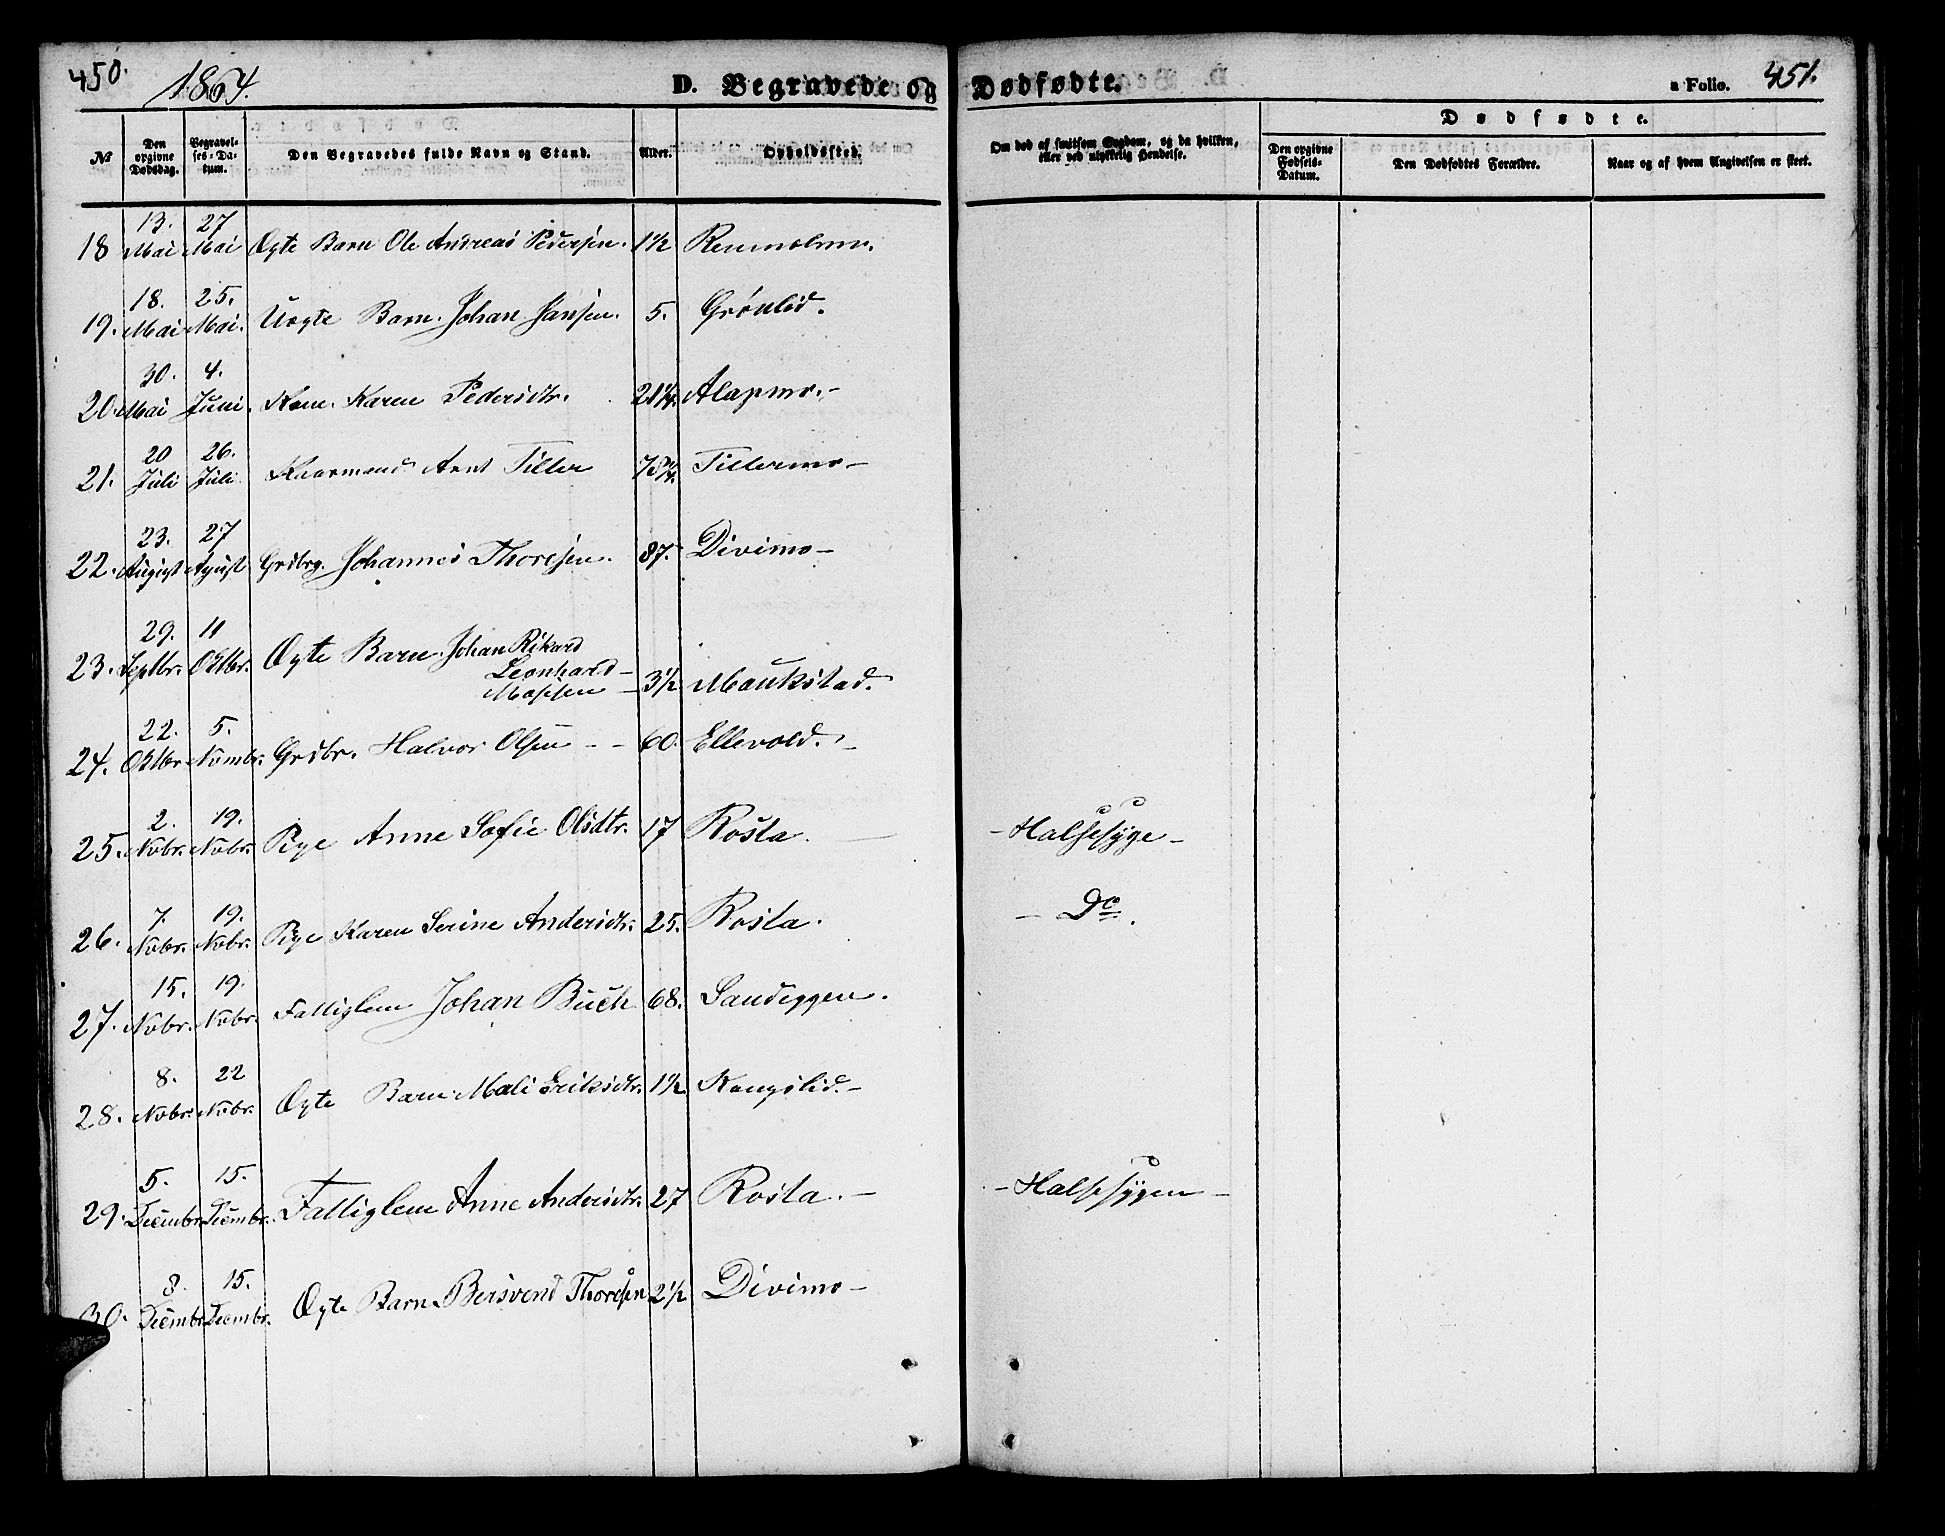 450.
1864.
D. Begravede og Dødfødte.
a Folio. 451.
№
Den opgivne Dødsdag.
Begravelses-Datum.
Den Begravedes fulde Navn og Stand.
Alder.
Opholdssted.
Om død af smitsom Sygdom, og da hvilken, eller ved ulykkelig Hendelse.
Dødfødte.
Den opgivne Fødsels-Datum.
Den Dødfødtes Forældre.
Naar og af hvem Angivelsen er skeet.
18 13. Mai 27 Mai Ægte Barn Ole Andreas Pedersen. 1½
19. 18. Mai 25. Mai. Uægte Barn Johan Jansen. 5. Grønlid.
20. 30. Mai 4. Juni. Karen Pedersdtr. 21¼ Alapmo.-
21. 20 Juli 26. Juli Kaarmand Arnt Tiller Tillermo-
22. 23. August 27 August Grdbrg. Johannes Thoresen. 87. Divimo-
23. 29. Septbr. 11 Oktbr. Ægte Barn Johan Rikard
Leonhard-
3½ Maukstad.
24. 22. Oktbr 5. Novmbr. Grdbr. Halvor Olsen - - 60. Ellevold.-
25. 2. Nvbr. 19. Nvbr. Pige Anne Sofie Olsdtr. 17 Rosta. - Halsesyge -
26. 7. Nvbr. 19. Nvbr. Pige Karen Serine Andersdtr. 25. Rosta. - Do.
27. 15. Nvbr. 19. Nvbr. Fattiglem Johan Buch 68. Sandeggen.
28. 8. Nvbr. 22 Nvbr. Ægte Barn Mali Eriksdtr. 1½ Kongslid.-
29. 5. Decmbr. 15. Decmbr. Fattiglem Anne Andersdtr. 27 Rosta.- - Halsesygen -
30. 8. Decmbr. 15. Decmbr. Ægte Barn Bersvend Thoresen 2½ Divimo-